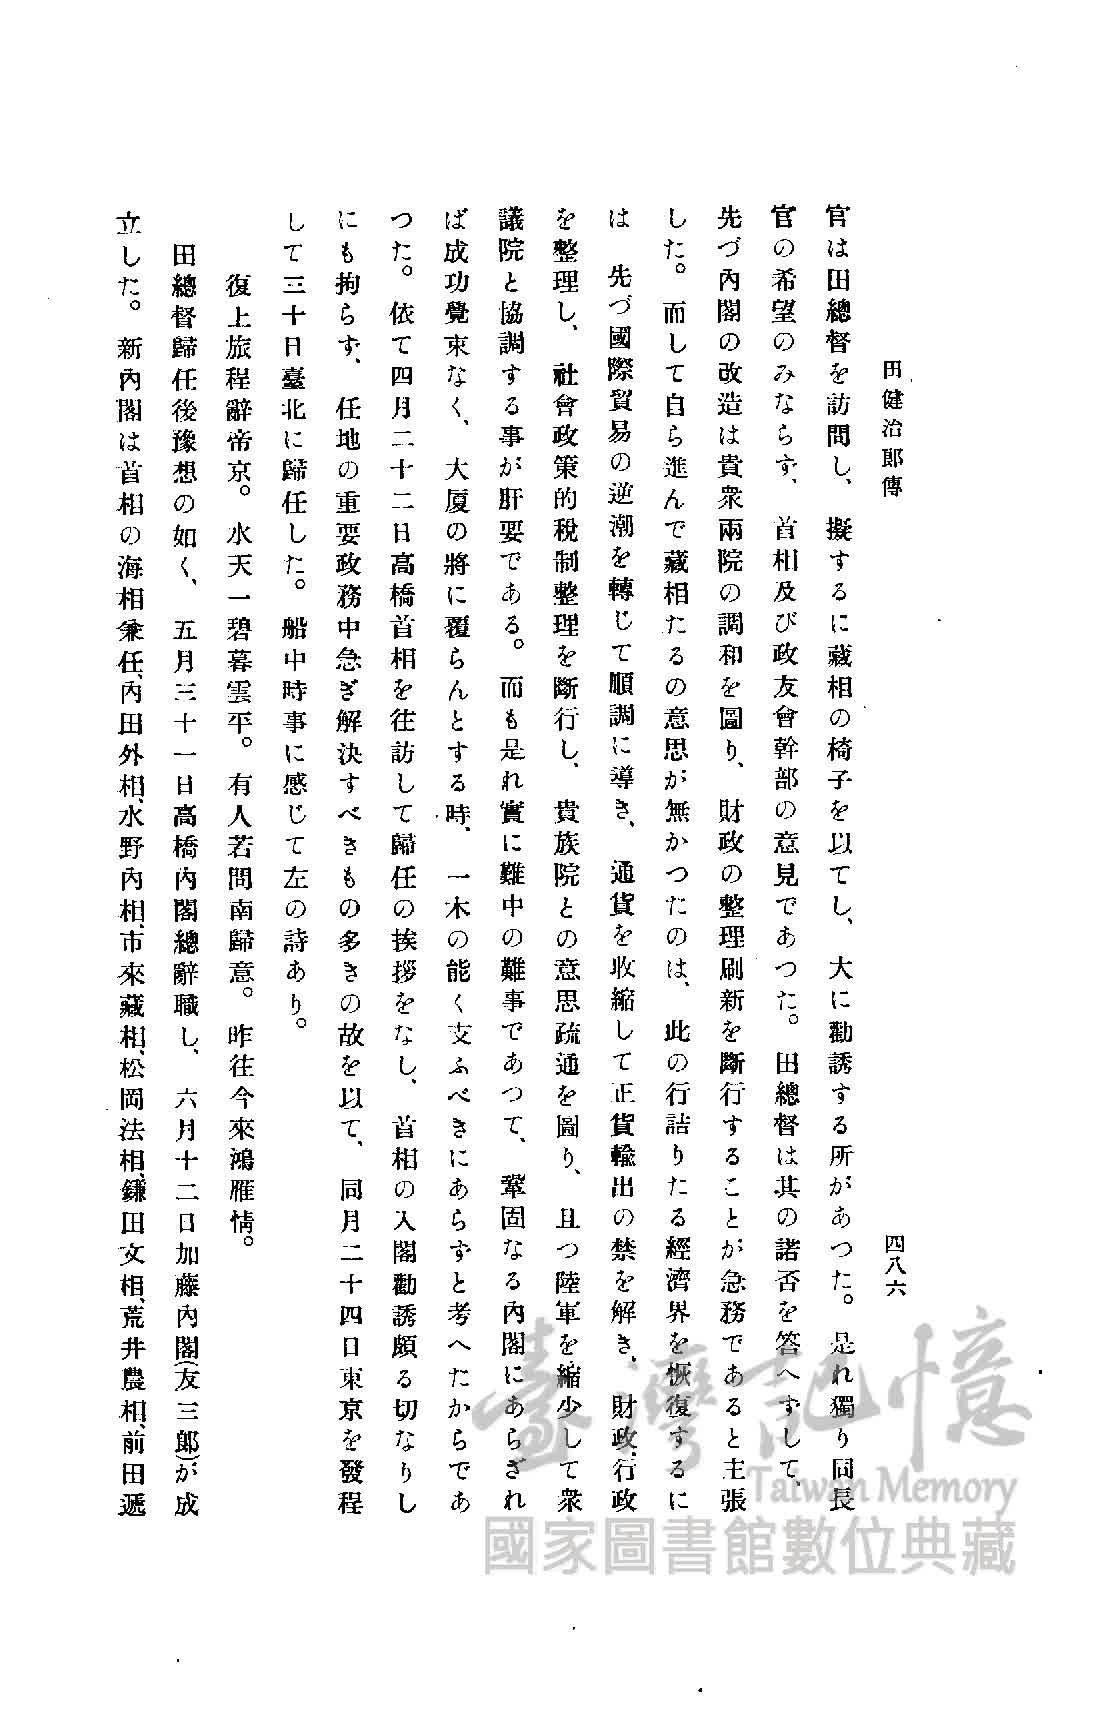 田健治郎傳
四八六
官は田總督を訪問し、擬するに藏相の椅子を以てし、大に勸誘する所があつた。是れ獨り同長
官の希望のみならず、首相及び政友會幹部の意見であつた。田總督は其の諾否を答へずして、
先づ內閣の改造は貴衆兩院の調和を圖り、財政の整理刷新を斷行することが急務であると主張
した。而して自ら進んで藏相たるの意思が無かつたのは、此の行詰りたる經濟界を恢復するに
は　先づ國際貿易の逆潮を轉じて順調に導き、通貨を收縮して正貨輸出の禁を解き、財政、行政
を整理し、社會政策的稅制整理を斷行し、貴族院との意思疏通を圖り、且つ陸軍を縮少して衆
議院と協調する事が肝要である。而も是れ實に難中の難事であつて、鞏固なる內閣にあらざれ
ば成功覺束なく、大厦の將に覆らんとする時、一木の能く支ふべきにあらずと考へたからであ
つた。依て四月二十二日高橋首相を往訪して歸任の挨拶をなし、首相の入閣勸誘頗る切なりし
にも拘らず、任地の重要政務中急ぎ解決すべきもの多きの故を以て、同月二十四日東京を發程
して三十日臺北に歸任した。船中時事に感じて左の詩あり。
復上旅程辭帝京。水天一碧暮雲平。有人若問南歸意。昨往今來鴻雁情。
田總督歸任後豫想の如く、五月三十一日高橋內閣總辭職し、六月十二日加藤內閣(友三郎)が成
立した。新內閣は首相の海相兼任、內田外相、水野內相、市來藏相、松岡法相、鎌田文相、荒井農相、前田遞
臺灣記憶
Taiwan Memory
國家圖書館數位典藏